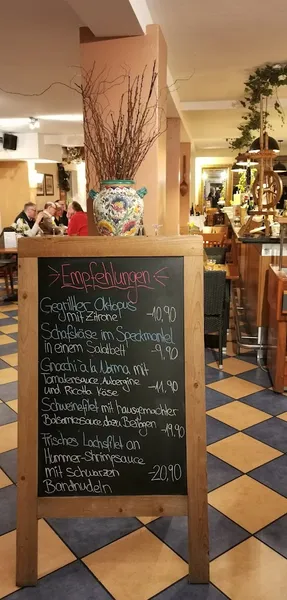 Empfehlungen
Gegrillter Oktopus
mit Zitrone -10,90
Schafskäse im Speckmantel
in einem Salatbett -9,90
Gnocchi á la Norma mit
Tomatensauce, Aubergine
und Ricotta Käse -11,90
Schweinefilet mit hausgemachter
Balsamicosauce, dazu Beilagen -19,90
Frisches Lachsfilet an
Hummer-Shrimpsauce
mit schwarzen -20,90
Bandnudeln